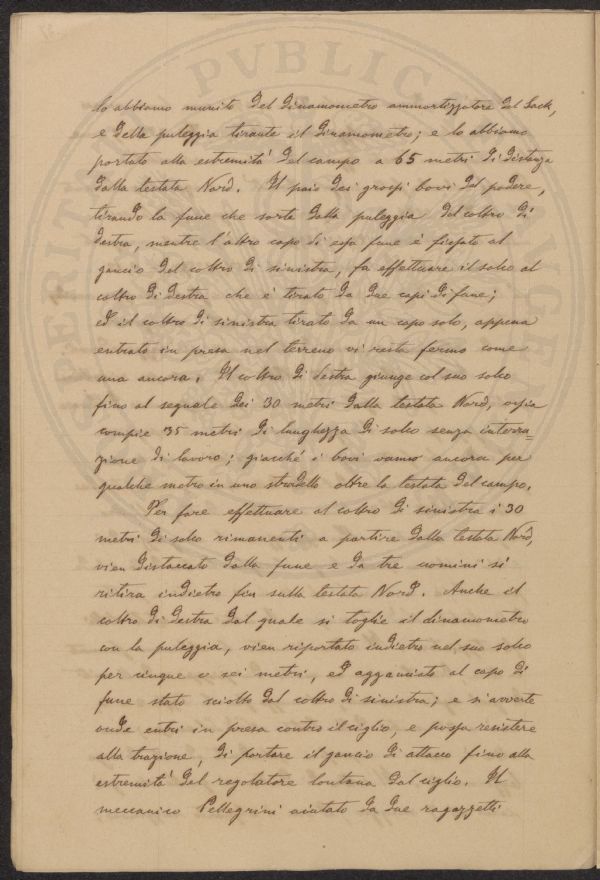 PVBLIC
lo abbiamo munito del dinamometro ammortizzatore del Sack,
e della puleggia tirante il dinamometro; e lo abbiamo
portato alla estremità del campo a 65 metri di distanza
dalla testata Nord. Il paio dei grossi bovi del podere,
tirando la fune che sorte dalla puleggia del coltro di
destra, mentre l'altro capo di essa fune è fissato al
gancio del coltro di sinistra, fa effettuare il solco al
coltro di destra che è tirato da due capi di fune;
ed il coltro di sinistra tirato da un capo solo, appena
entrato in presa nel terreno vi resta fermo come
una ancora. Il coltro di destra giunge col suo solco
fino al segnale dei 30 metri dalla testata Nord, ossia
compie 35 metri di lunghezza di solco senza interru=
zione di lavoro; giacché i bovi vanno ancora per
qualche metro in uno stradello oltre la testata del campo.
Per fare effettuare al coltro di sinistra i 30
metri di solco rimanenti a partire dalla testata Nord,
vien distaccato dalla fune e da tre uomini si
ritira indietro fin sulla testata Nord. Anche il
coltro di destra dal quale si toglie il dinamometro
con la puleggia, vien riportato indietro nel suo solco
per cinque o sei metri, ed agganciato al capo di
fune stato sciolto dal coltro di sinistra; e si avverte
onde entri in presa contro il ciglio, e possa resistere
alla trazione, di portare il gancio di attacco fino alla
estremità del regolatore lontana dal ciglio. Il
meccanico Pellegrini aiutato da due ragazzetti